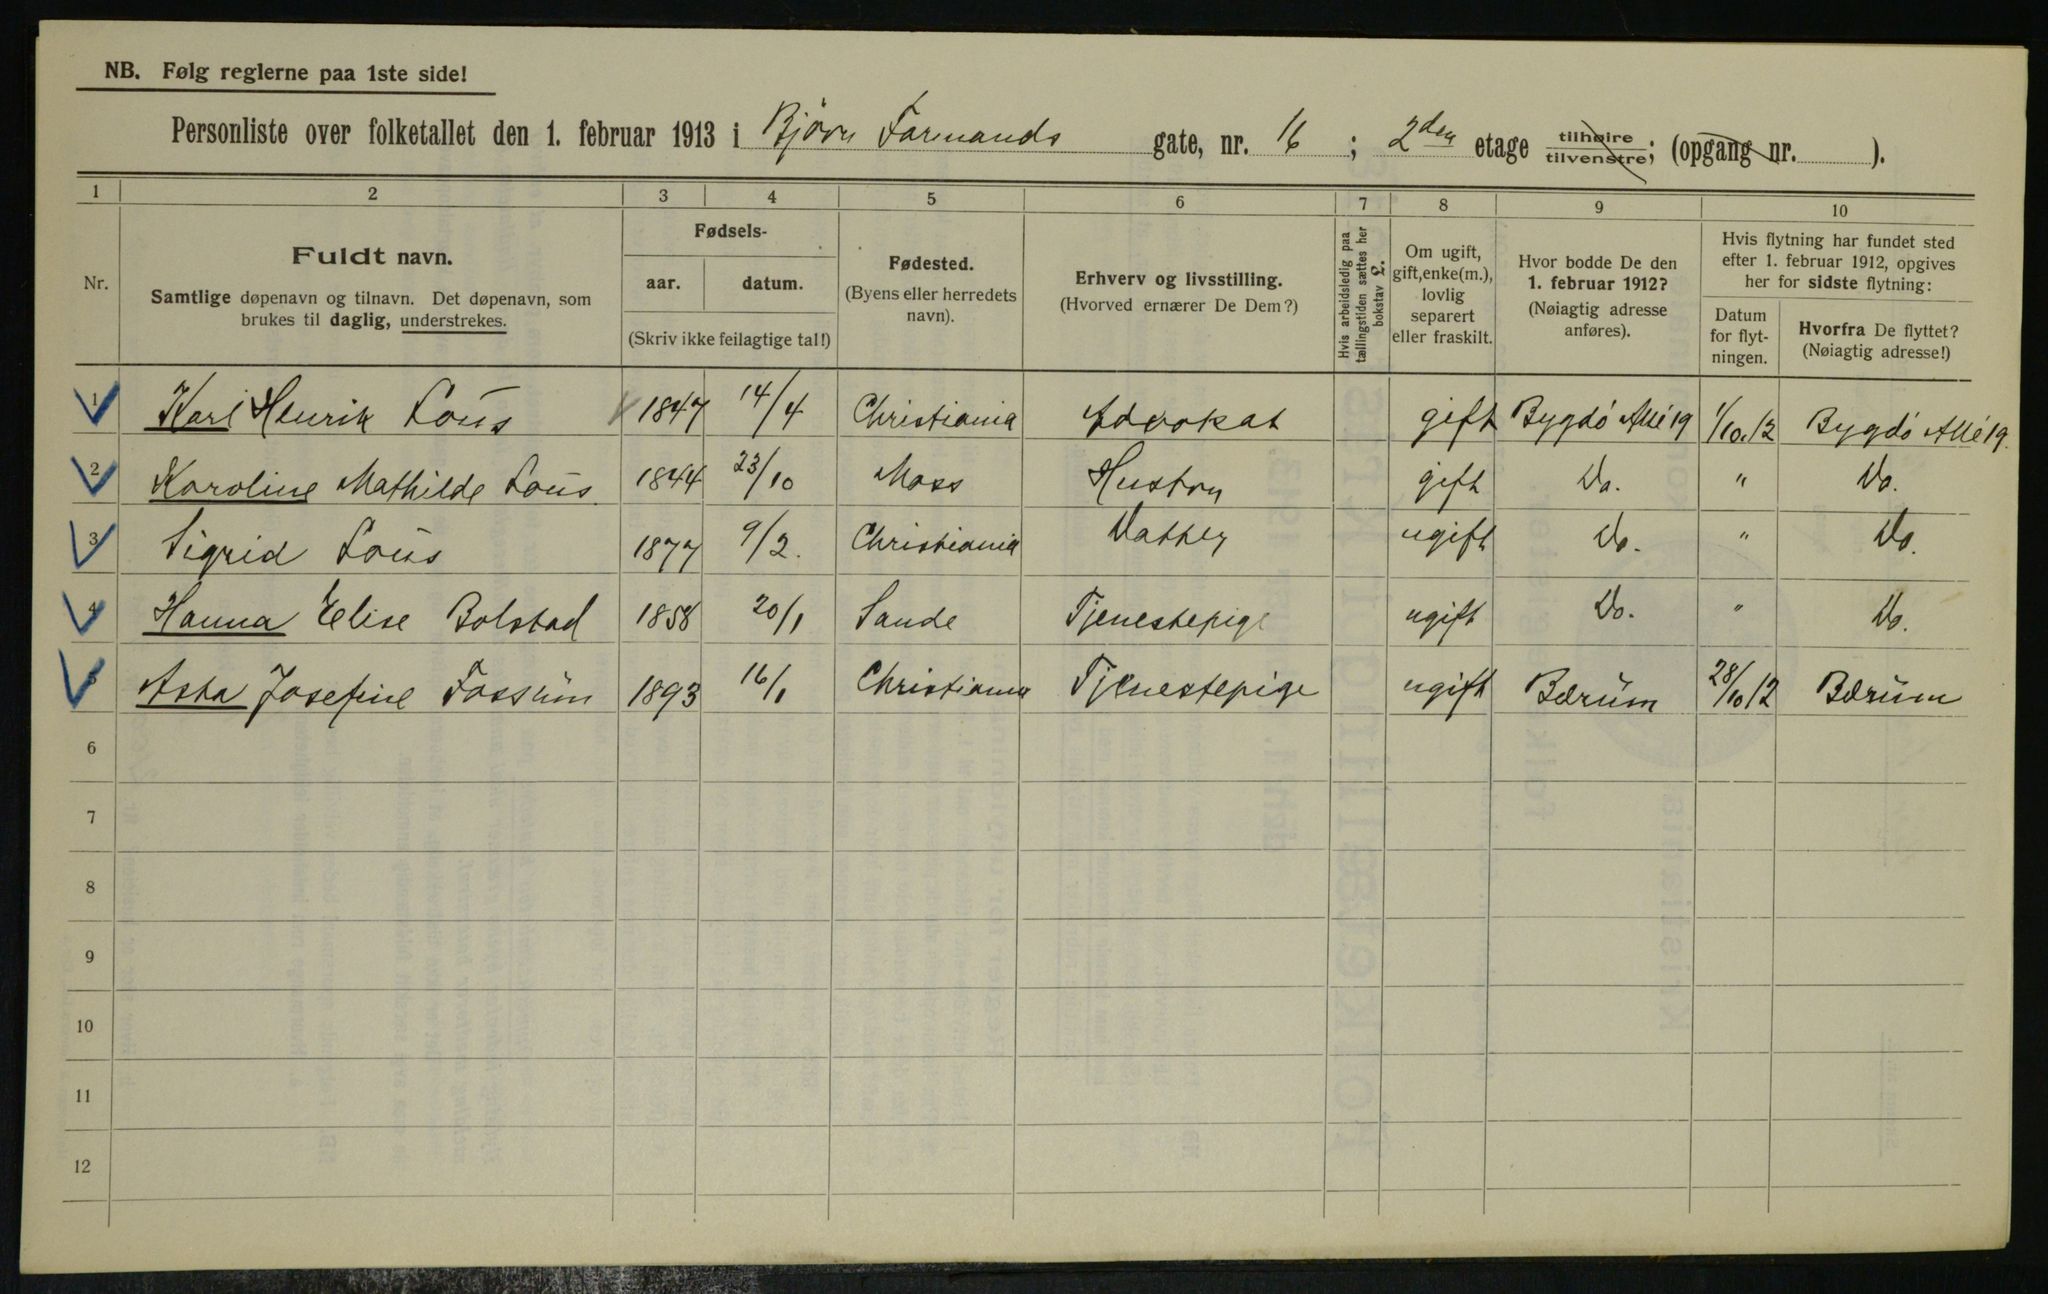 NB. Følg reglerne paa 1ste side!
Personliste over folketallet den 1. februar 1913 i Bjørn Farmands gate, nr. 16 ; 2den etage tilhøire tilvenstre; (opgang nr. ).
1 2 3 4 5 6 7 8 9 10
Nr.
Fuldt navn.
Samtlige døpenavn og tilnavn. Det døpenavn, som
brukes til daglig, understrekes.
Fødsels-
aar. datum.
(Skriv ikke feilagtige tal!)
Fødested.
(Byens eller herredets
navn).
Erhverv og livsstilling.
(Hvorved ernærer De Dem?)
Hvis arbeidsledig paa
tællingstiden sættes her
bokstav L.
Om ugift,
gift, enke(m.),
lovlig
separert
eller fraskilt.
Hvor bodde De den
1. februar 1912?
(Nøiagtig adresse
anføres).
Hvis flytning har fundet sted
efter 1. februar 1912, opgives
her for sidste flytning:
Datum
for flyt-
ningen.
Hvorfra De flyttet?
(Nøiagtig adresse!)
1 Karl Henrik Loüs 1847 14/4 Christiania Advokat gift Bygdö Allé 19 1/10.12 Bygdö Allé 19.
2 Karoline Mathilde Loüs. 1844 23/10 Moss Hustru gift Do. " Do.
3 Sigrid Loüs 1877 9/2. Christiania Datter ugift Do. " Do.
4 Hanna Elise Bolstad 1858 20/1 Sande Tjenestepige ugift Do. " Do.
5 Asta Josefine Fossüm 1893 16/1 Christiania Tjenestepige ugift Bærüm 28/10 12 Bærüm
6
7
8
9
10
11
12